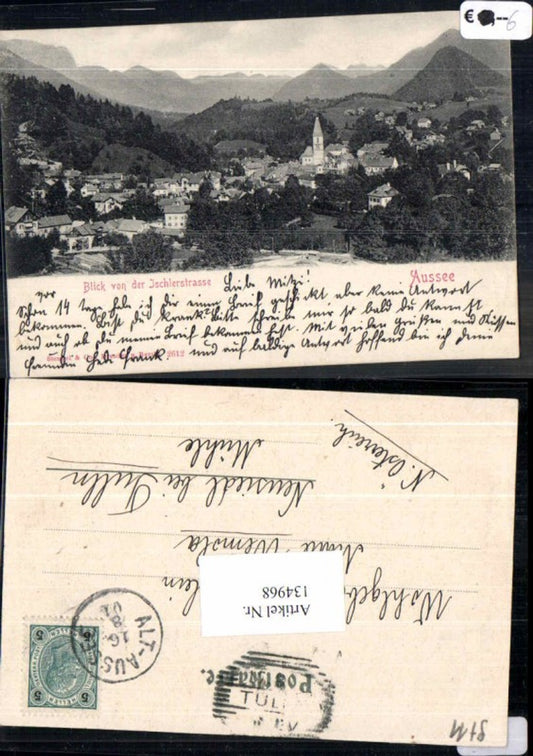 € --6
Blick von der Ischlerstrasse
Aussee
Liebe Mitzi!
Schon vor 14 tage hab ich dir einen Brief geschickt aber keine Antwort
bekommen. Bist du Krank? Bitte schreibe mir so bald du Kannst
und auch ob du meinen Brief bekommen hast. Mit vielen Grüßen und Küssen
und auf baldige Antwort hoffend bin ich deine
Freundin Hedi Frank
2612
N. Österreich.
Mühle
Neusiedl bei Tulln
Anna
Wohlgeb
lein
Artikel Nr.
134968
ALT-AUSSEE
16
8
01
5
5
Postkarte.
TULLN
StM